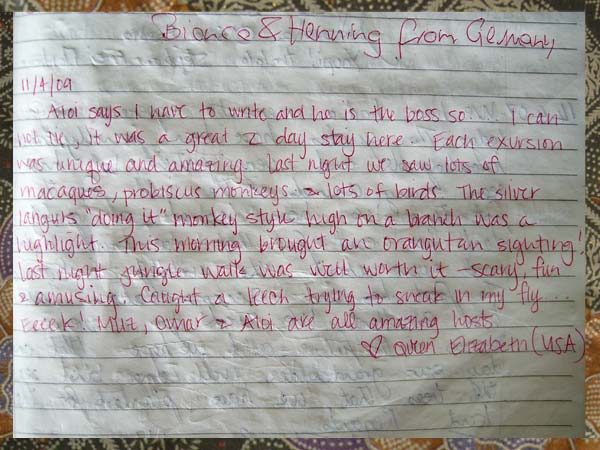 Bianca & Henning from Germany
11/4/09
Aloi says I have to write and he is the boss so... I can
not lie, it was a great 2 day stay here. Each exursion
was unique and amazing. Last night we saw lots of
macaques, probiscus monkeys & lots of birds. The silver
langurs "doing it" monkey style high on a branch was a
highlight. This morning brought an orangutan sighting!
Last night jungle walk was well worth it - scary, fun
& amusing. Caught a leech trying to sneak in my fly....
Eeeek! Muz, Omar & Aloi are all amazing hosts.
♡ Queen Elizabeth (USA)